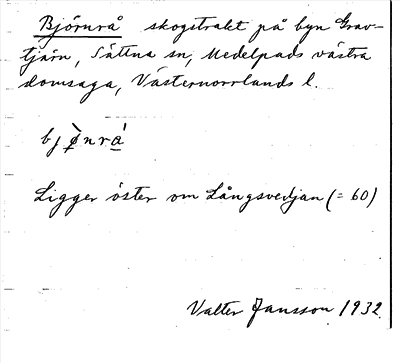 Björnrå skogstrakt på byn Grav-
tjärn, Sättna sn, Medelpads västra
domsaga, Västernorrlands l.
bjø̀nrá
Ligger öster om Långsvedjan (= 60)
Valter Jansson 1932